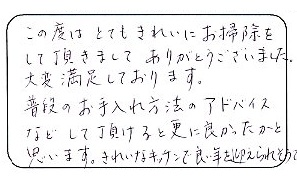 この度は とても きれいに お掃除を
して頂きまして ありがとうございました。
大変 満足しております。
普段の お手入れ方法の アドバイス
など して頂けると更に良かったかと
思います。きれいなキッチンで良い年を迎えられそうで